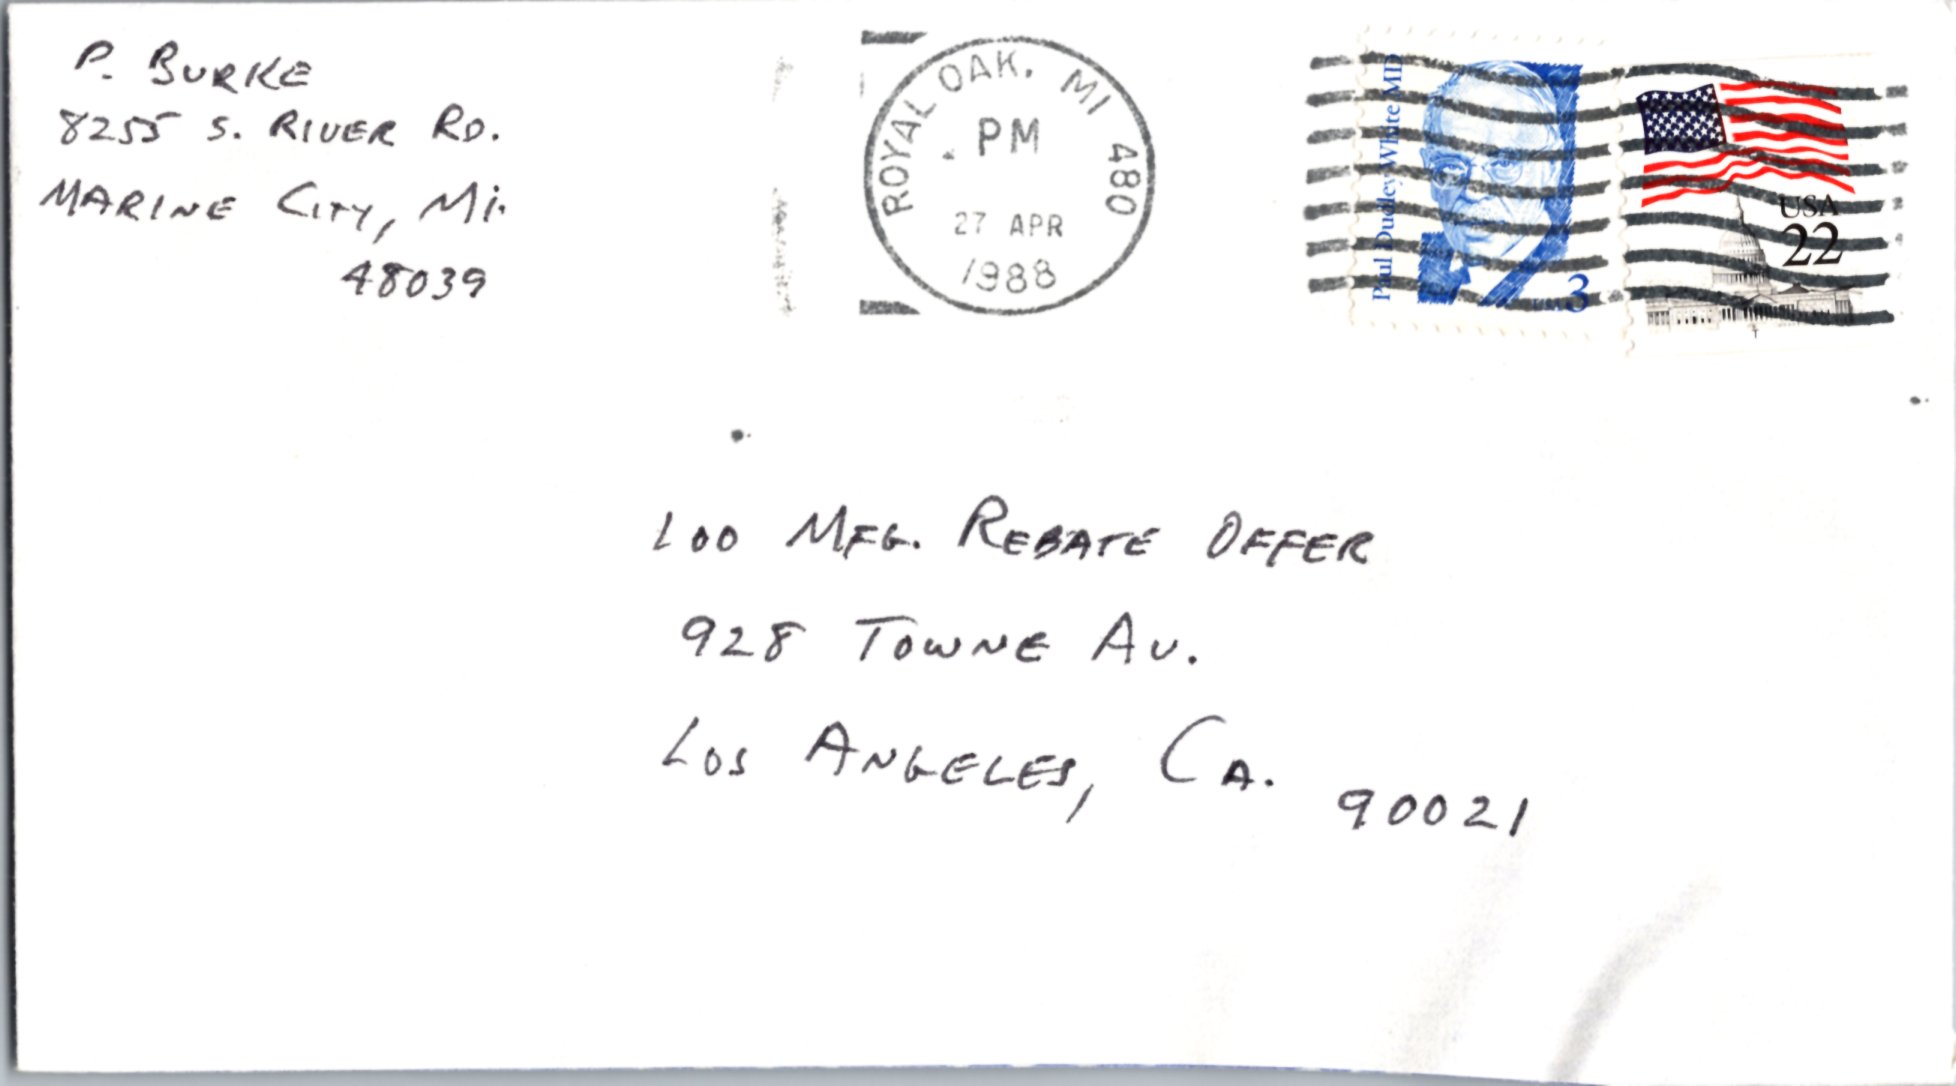 P. BURKE
8255 S. RIVER RD.
MARINE CITY, Mi.
48039
ROYAL OAK, MI 480
PM
27 APR
1988
Paul Dudley White MD
USA 3
USA
22
100 MFG. REBATE OFFER
928 TOWNE AV.
LOS ANGELES, CA.
90021